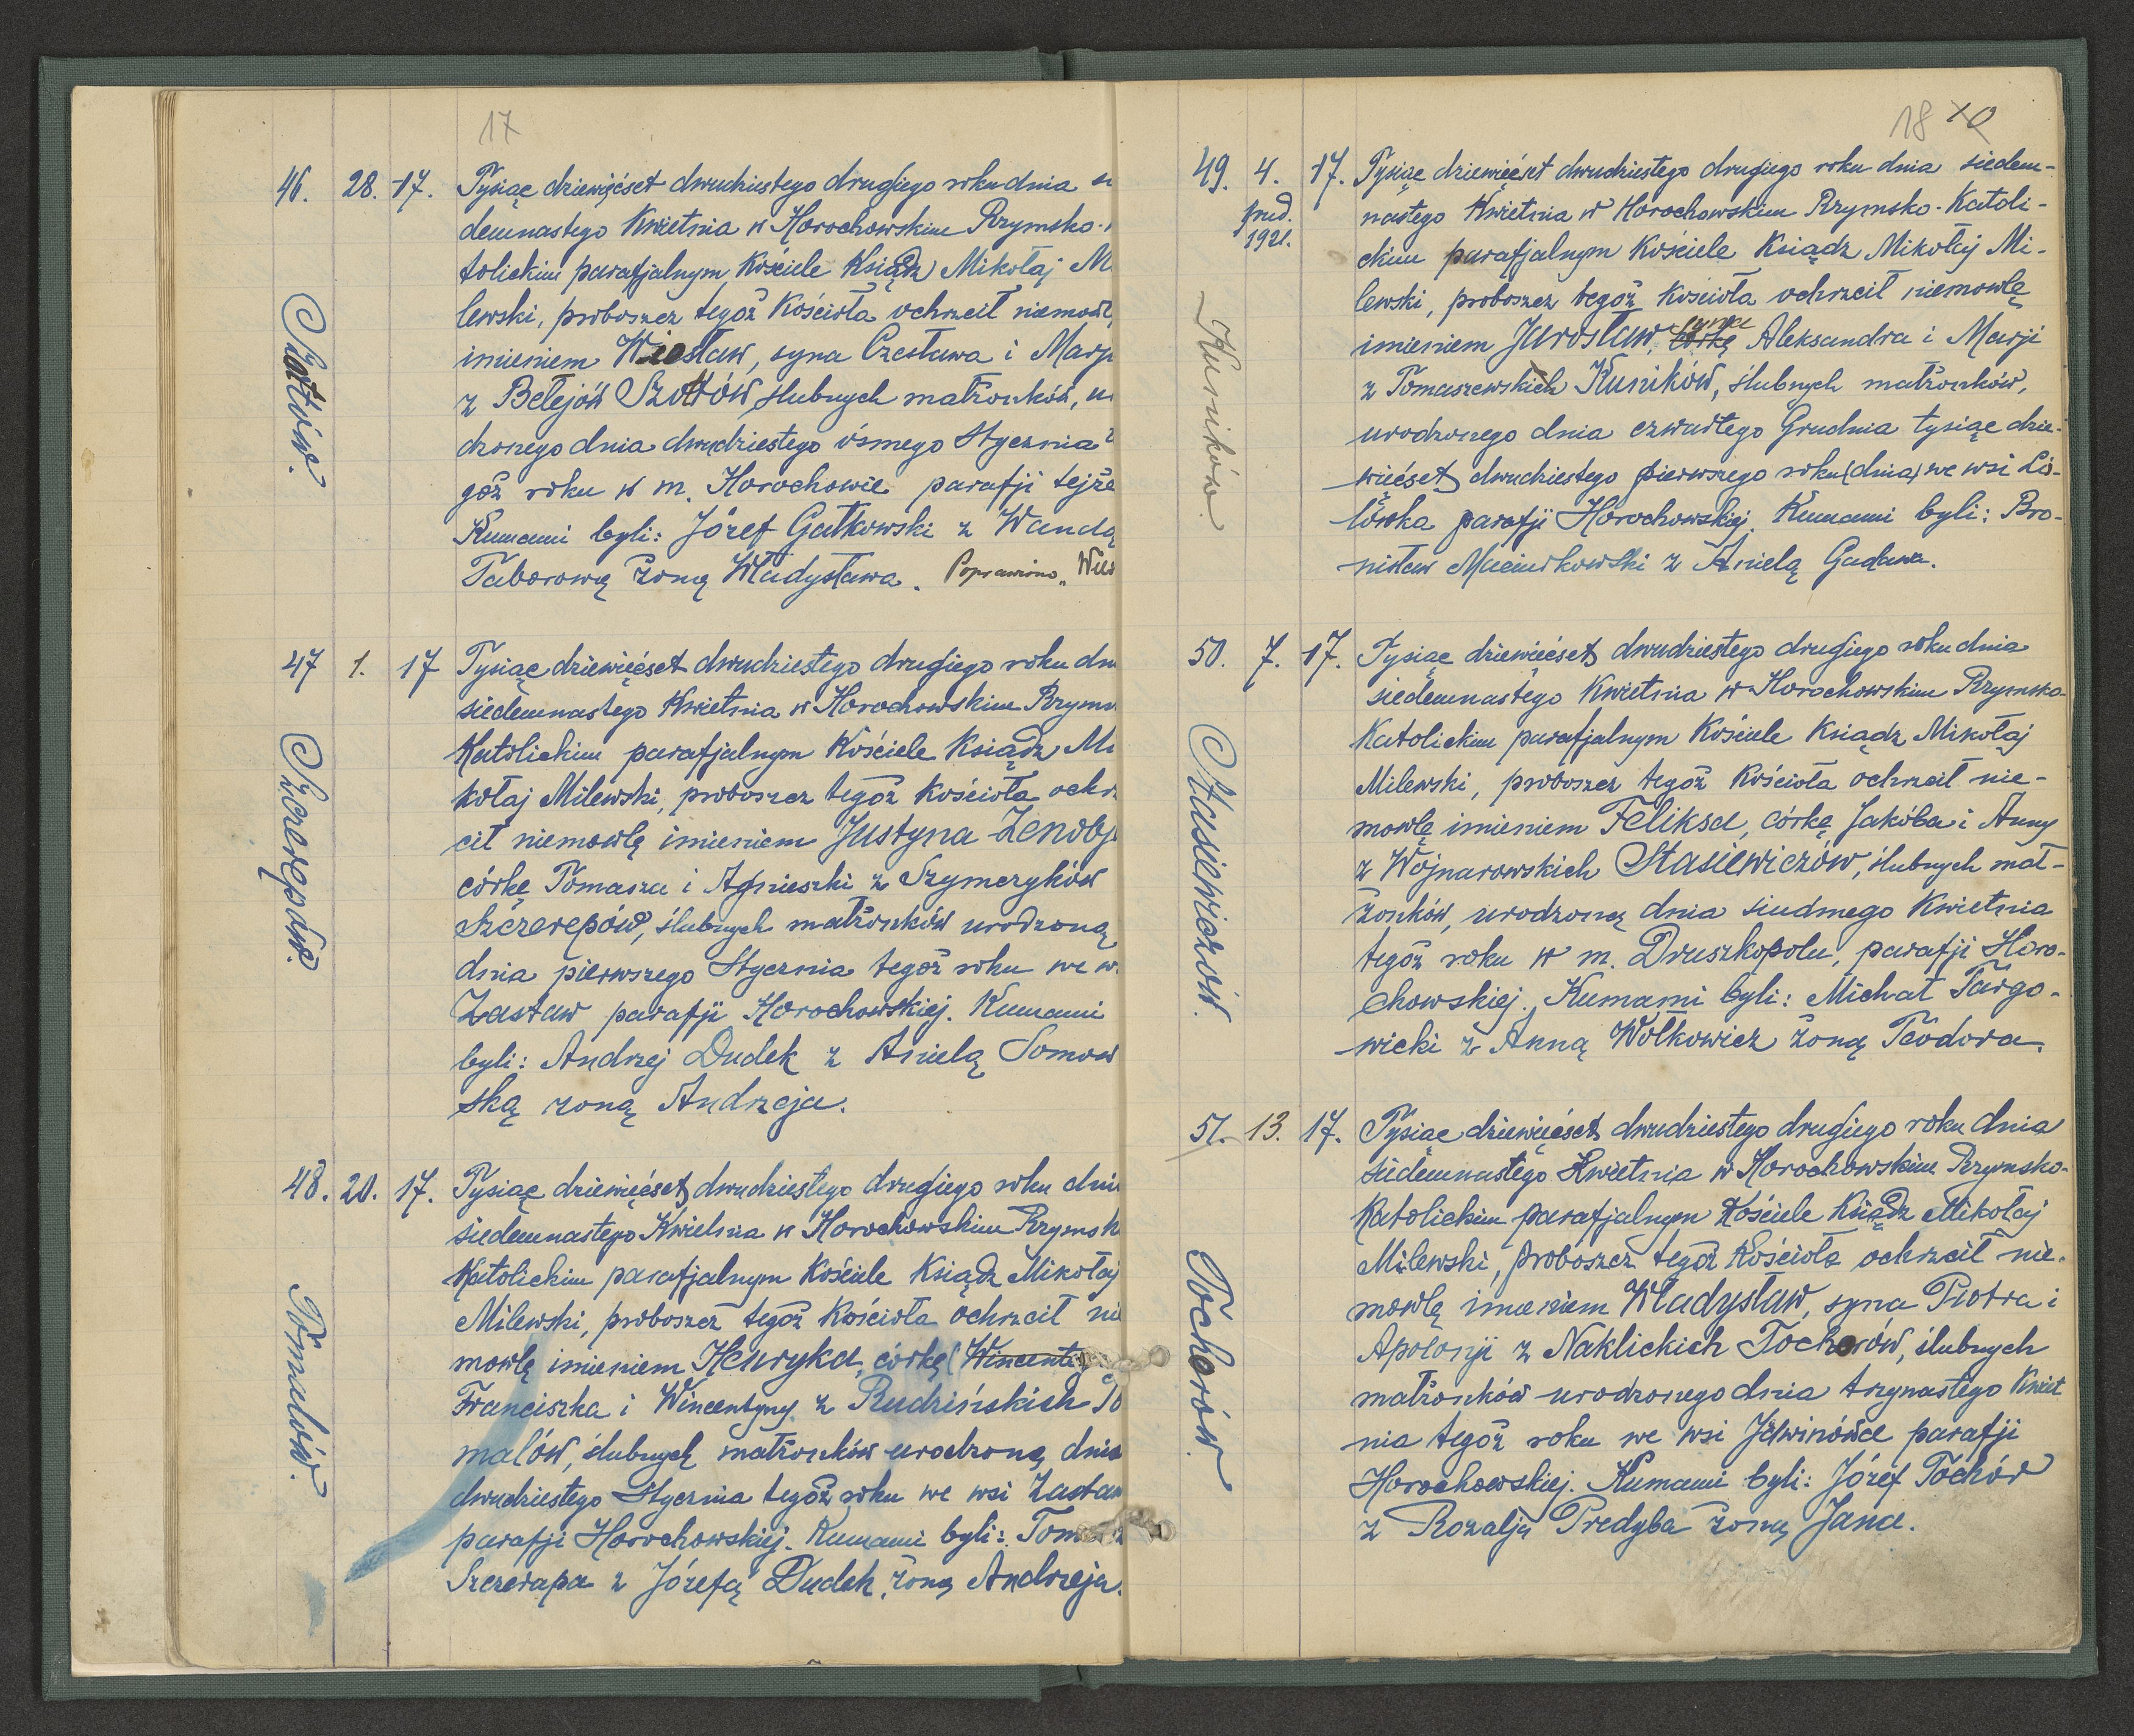 17
46. 28. 17. Tysiąc dziewięćset dwudziestego drugiego roku dnia
demnastego Kwietnia w Horochowskim Rzymsko-
tolickim parafjalnym Kościele Ksiądz Mikołaj M
lewski, proboszcz tegoż Kościoła ochrzcił niemowl
imieniem Wiesław, syna Czesława i Marj
z Betejów Szottów, ślubnych małżonków, u
dzonego dnia dwudziestego ósmego Stycznia
goż roku w m. Horochowie parafji tejże
Kumami byli: Józef Gatkowski z Wandą
Taborową żoną Władysława. Poprawiono „Wies
Szottów.
47 1. 17 Tysiąc dziewięćset dwudziestego drugiego roku dn
siedemnastego Kwietnia w Horochowskim Rzyms
Katolickim parafjalnym Kościele Ksiądz Mi
kołaj Milewski, proboszcz tegoż Kościoła ochrz
cił niemowlę imieniem Justyna Zenobj
córkę Tomasza i Agnieszki z Szymczyków
Szczerepów, ślubnych małżonków urodzoną
dnia pierwszego Stycznia tegoż roku we w
Zastaw parafji Horochowskiej. Kumami
byli: Andrzej Dudek z Anielą Somow
ską żoną Andrzeja.
Szczerepów.
48. 20. 17. Tysiąc dziewięćset dwudziestego drugiego roku dni
siedemnastego Kwietnia w Horochowskim Rzymsk
Katolickim parafjalnym Kościele Ksiądz Mikołaj
Milewski, proboszcz tegoż Kościoła ochrzcił nie
mowlę imieniem Henryka, córkę (Wincenty
Franciszka i Wincentyny z Rudzińskich To
malów, ślubnych małżonków urodzoną dnia
dwudziestego Stycznia tegoż roku we wsi Zastaw
parafji Horochowskiej. Kumami byli: Tomasz
Szczerapa z Józefą Dudek, żoną Andrzeja.
Tomalów.
18 10
49. 4. 17. Tysiąc dziewięćset dwudziestego drugiego roku dnia siedem-
grud. nastego Kwietnia w Horochowskim Rzymsko-Katoli-
1921. ckim parafjalnym Kościele Ksiądz Mikołaj Mi-
lewski, proboszcz tegoż Kościoła ochrzcił niemowlę
imieniem Jarosław, córkę syna Aleksandra i Marji
z Tomaszewskich Kuników, ślubnych małżonków,
urodzonego dnia czwartego Grudnia tysiąc dzie-
więćset dwudziestego pierwszego roku (dnia) we wsi Lis-
lówka parafji Horochowskiej. Kumami byli: Bro-
nisław Maciurkowski z Anielą Gadawa.
Kuników.
50. 7. 17. Tysiąc dziewięćset dwudziestego drugiego roku dnia
siedemnastego Kwietnia w Horochowskim Rzymsko-
Katolickim parafjalnym Kościele Ksiądz Mikołaj
Milewski, proboszcz tegoż Kościoła ochrzcił nie-
mowlę imieniem Feliksa, córkę Jakóba i Anny
z Wojnarowskich Stasiewiczów, ślubnych mał-
żonków, urodzoną dnia siudmego Kwietnia
tegoż roku w m. Druszkopolu, parafji Horo-
chowskiej. Kumami byli: Michał Targo-
wicki z Anną Wołkowicz żoną Teodora.
Stasiewiczów.
51. 13. 17. Tysiąc dziewięćset dwudziestego drugiego roku dnia
siedemnastego Kwietnia w Horochowskim Rzymsko-
Katolickim parafjalnym Kościele Ksiądz Mikołaj
Milewski, proboszcz tegoż Kościoła ochrzcił nie-
mowlę imieniem Władysław, syna Piotra i
Apolonji z Naklickich Tochorów, ślubnych
małżonków urodzonego dnia trzynastego Kwiet
nia tegoż roku we wsi Jdwinówce parafji
Horochowskiej. Kumami byli: Józef Tochór
z Rozalją Predyba żoną Jana.
Tochorów.